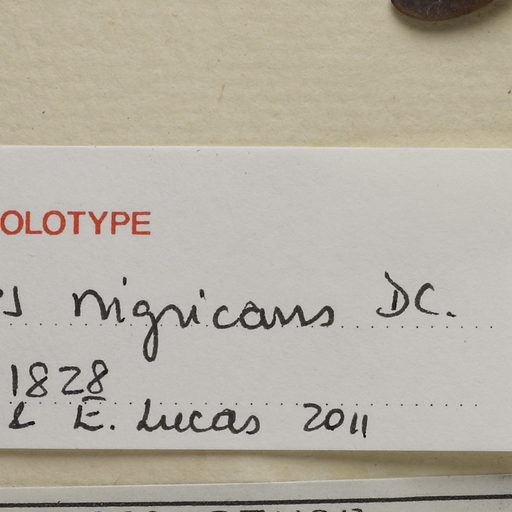 OLOTYPE
s nigricans DC.
1828
& E. Lucas 2011